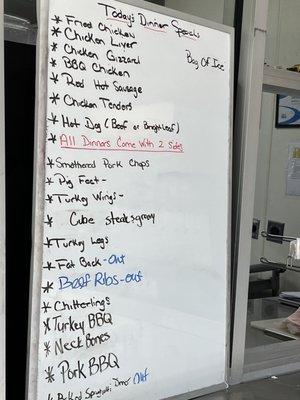 Today's Dinner Specials
* Fried Chicken
Bag Of Ice
* Chicken Liver
* Chicken Gizzard
* BBQ Chicken
* Red Hot Sausage
* Chicken Tenders
* Hot Dog (Beef or Bright Leaf)
* All Dinners Come With 2 Sides
* Smothered Pork Chops
* Pig Feet -
* Turkey Wings -
* Cube steak+gravy
* Turkey Legs
* Fat Back - out
* Beef Ribs - out
* Chitterlings
* Turkey BBQ
* Neck Bones
* Pork BBQ
* Baked Spaghetti Dinner Out